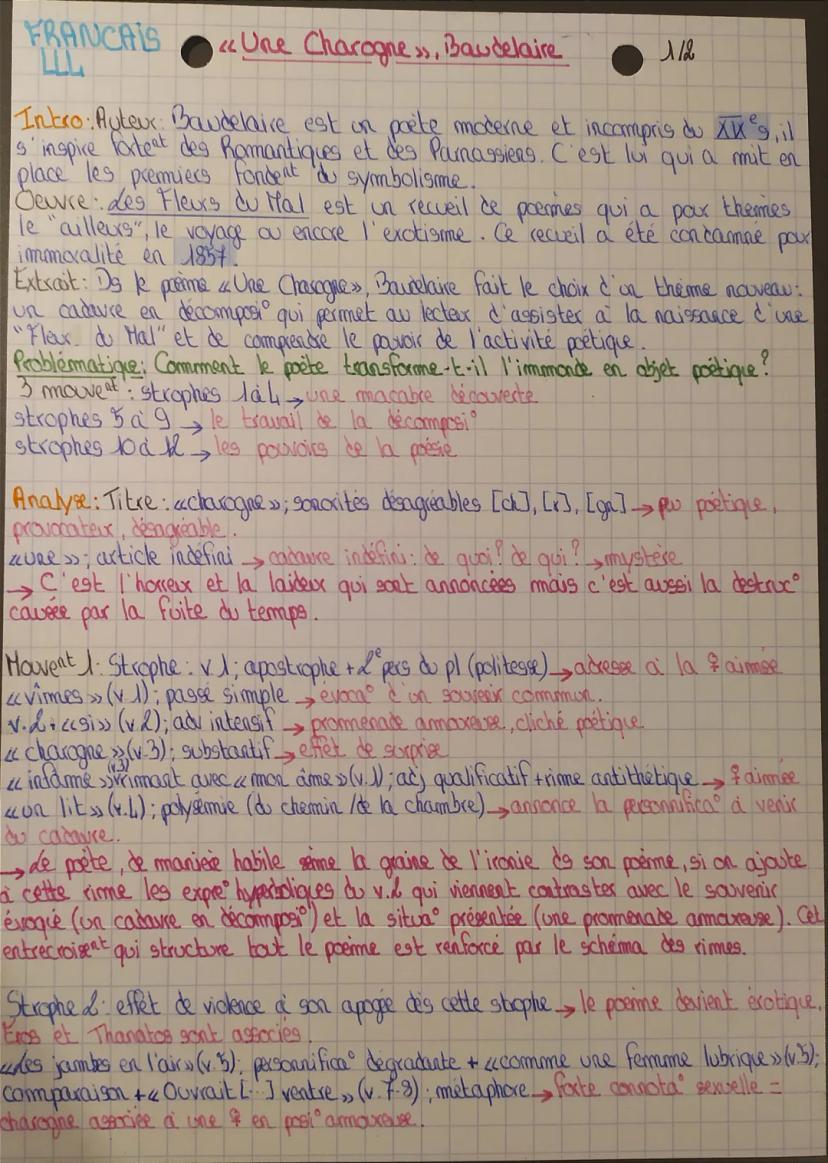 FRANCAIS
LLL
«Une Charogne», Baudelaire
1/2
Intro: Auteur: Baudelaire est un poète moderne et incompris du XIXe s, il
s'inspire fortent des Romantiques et des Parnassiens. C'est lui qui a mit en
place les premiers fondent du symbolisme.
Oeuvre: Les Fleurs du Mal est un recueil de poèmes qui a pour thèmes
le "ailleurs", le voyage ou encore l'exotisme. Ce recueil a été condamné pour
immoralité en 1857.
Extrait: Ds le poème «Une Charogne», Baudelaire fait le choix d'un thème nouveau:
un cadavre en décomposi° qui permet au lecteur d'assister à la naissance d'une
"Fleur du Mal" et de comprendre le pouvoir de l'activité poétique.
Problématique: Comment le poète transforme-t-il l'immonde en objet poétique?
3 mouvent: strophes 1 à 4 → une macabre découverte
strophes 5 à 9 → le travail de la décomposi°
strophes 10 à 12 → les pouvoirs de la poésie
Analyse: Titre: «charogne»; sonorités désagréables [ch], [r], [gn] → peu poétique,
provocateur, désagréable.
«une»; article indéfini → cadavre indéfini: de quoi? de qui? → mystère
→ C'est l'horreur et la laideur qui sont annoncées mais c'est aussi la destruc°
causée par la fuite du temps.
Mouvent 1: Strophe: v.1; apostrophe + 2e pers du pl (politesse) → adresse à la ♀ aimée
«vîmes» (v.1); passé simple → évoca° d'un souvenir commun.
v.2: «si» (v.2); adv intensif → promenade amoureuse, cliché poétique
«charogne» (v.3); substantif → effet de surprise
«infâme» (v.3) rimant avec «mon âme» (v.1); adj qualificatif + rime antithétique → ♀ aimée
«un lit» (v.4); polysémie (du chemin / de la chambre) → annonce la personnifica° à venir
du cadavre.
→ Le poète, de manière habile sème la graine de l'ironie ds son poème, si on ajoute
à cette rime les expre° hyperboliques du v.2 qui viennent contraster avec le souvenir
évoqué (un cadavre en décomposi°) et la situa° présentée (une promenade amoureuse). Cet
entrecroisent qui structure tout le poème est renforcé par le schéma des rimes.
Strophe 2: effet de violence à son apogée dès cette strophe → le poème devient érotique,
Eros et Thanatos sont associés.
«Les jambes en l'air» (v.5); personnifica° dégradante + «comme une femme lubrique» (v.5);
comparaison + «Ouvrait [...] ventre» (v.7-8); métaphore → forte connota° sexuelle =
charogne associée à une ♀ en posi° amoureuse.